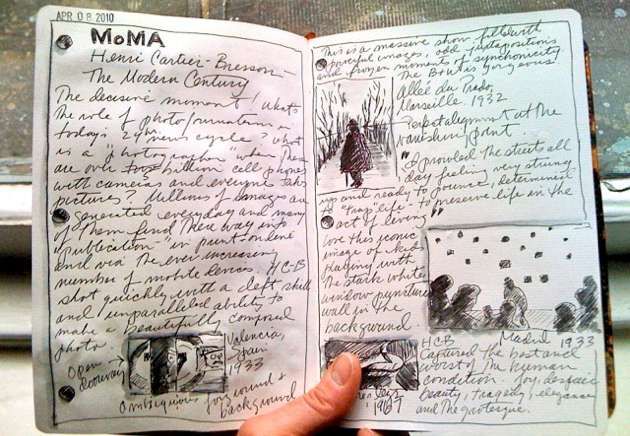 APR 08 2010
MoMA
Henri Cartier-Bresson-
The Modern Century
The decisive moment! What's
the role of photojournalism in
today's 24hr news cycle? What
is a "photographer" when there
are over billion cell phones
with cameras and everyone takes
pictures? Millions of images are
generated everyday and many
of them find their way into
"publication" in print + online
and via the ever increasing
number of mobile devices. HC-B
shot quickly with a deft skill
and unparalleled ability to
make a beautifully composed
photo.
Open
doorway
Valencia,
Spain
1933
Ambiguous foreground &
background
This is a massive show filled with
powerful images, odd juxtapositions
and frozen moments of synchronicity.
The is gorgeous!
Allée du Prado,
Marseille 1932
alignment at the
vanishing point.
"I prowled the streets all
day feeling very strung
up and ready to pounce, determined
to "trap" life - to preserve life in the
act of living"
love this iconic
image of kids
playing with
the stark white
window punctured
wall in the
background.
Madrid
1933
HC-B
Captured the best and
worst of the human
condition. Joy, despair
beauty, tragedy, elegance
and the grotesque.